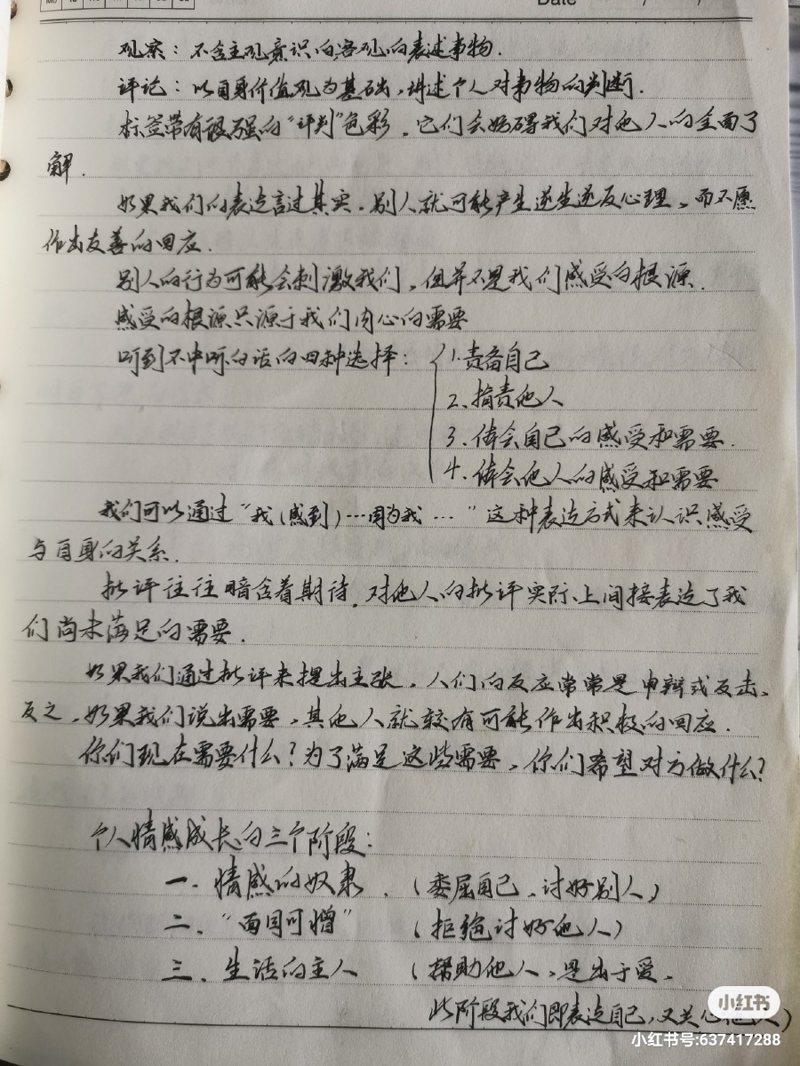 Date / /
观察：不含主观意识的客观的表述事物.
评论：以自身价值观为基础，讲述个人对事物的判断.
标签带有很强的“评判”色彩，它们会妨碍我们对他人的全面了
解.
如果我们的表达言过其实，别人就可能产生逆生逆反心理，而不愿
作出友善的回应.
别人的行为可能会刺激我们，但并不是我们感受的根源.
感受的根源只源于我们内心的需要
听到不中听的话的四种选择：
1.责备自己
2、指责他人
3、体会自己的感受和需要.
4、体会他人的感受和需要
我们可以通过“我(感到)…因为我…”这种表达方式来认识感受
与自身的关系.
批评往往暗含着期待.对他人的批评实际上间接表达了我
们尚未满足的需要.
如果我们通过批评来提出主张，人们的反应常常是申辩或反击、
反之，如果我们说出需要，其他人就较有可能作出积极的回应.
你们现在需要什么？为了满足这些需要，你们希望对方做什么？
个人情感成长的三个阶段：
一.情感的奴隶.（委屈自己，讨好别人）
二、“面目可憎”（拒绝讨好他人）
三、生活的主人（帮助他人，是出于爱.
此阶段我们即表达自己，又关心他人）
小红书
小红书号:637417288